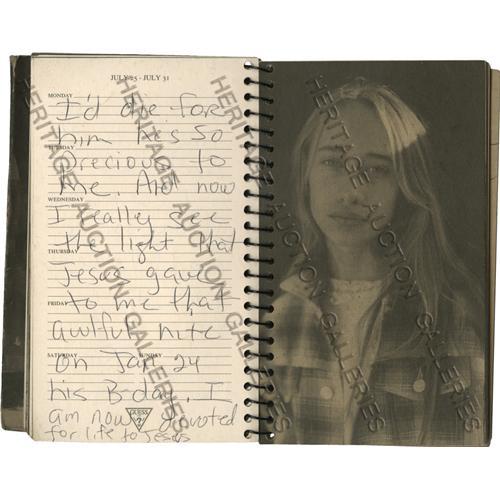 JULY 25 - JULY 31
MONDAY
I'd die for
him he's so
TUESDAY
precious to
me. And now
WEDNESDAY
I really see
the light that
THURSDAY
Jesus gave
to me that
FRIDAY
awlful nite
SATURDAY SUNDAY
on Jan 24
his B-day. I
am now devoted
for life to Jesus
GUESS
?
HERITAGE AUCTION GALLERIES
HERITAGE AUCTION GALLERIES
HERITAGE AUCTION GALLERIES
HERITAGE AUCTION GALLERIES